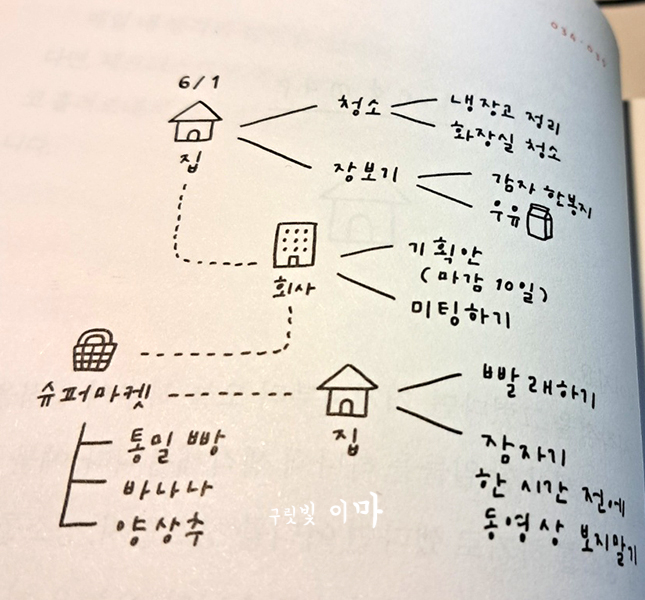 034·035
6/1
집
청소
냉장고 정리
화장실 청소
장보기
감자 한봉지
우유
회사
기획안
(마감 10일)
미팅하기
슈퍼마켓
통밀 빵
바나나
양상추
집
빨래하기
잠자기
한 시간 전에
동영상 보지말기
구릿빛 이마